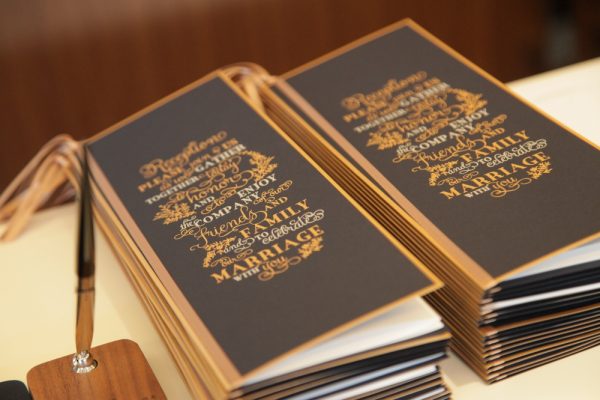 Reception
PLEASE JOIN US
TOGETHER GATHER
honor
AND ENJOY
the COMPANY of our
friends AND
FAMILY
and TO celebrate
our
MARRIAGE
WITH you
Reception
PLEASE JOIN US
TOGETHER GATHER
honor
AND ENJOY
the COMPANY of our
friends AND
FAMILY
and TO celebrate
our
MARRIAGE
WITH you